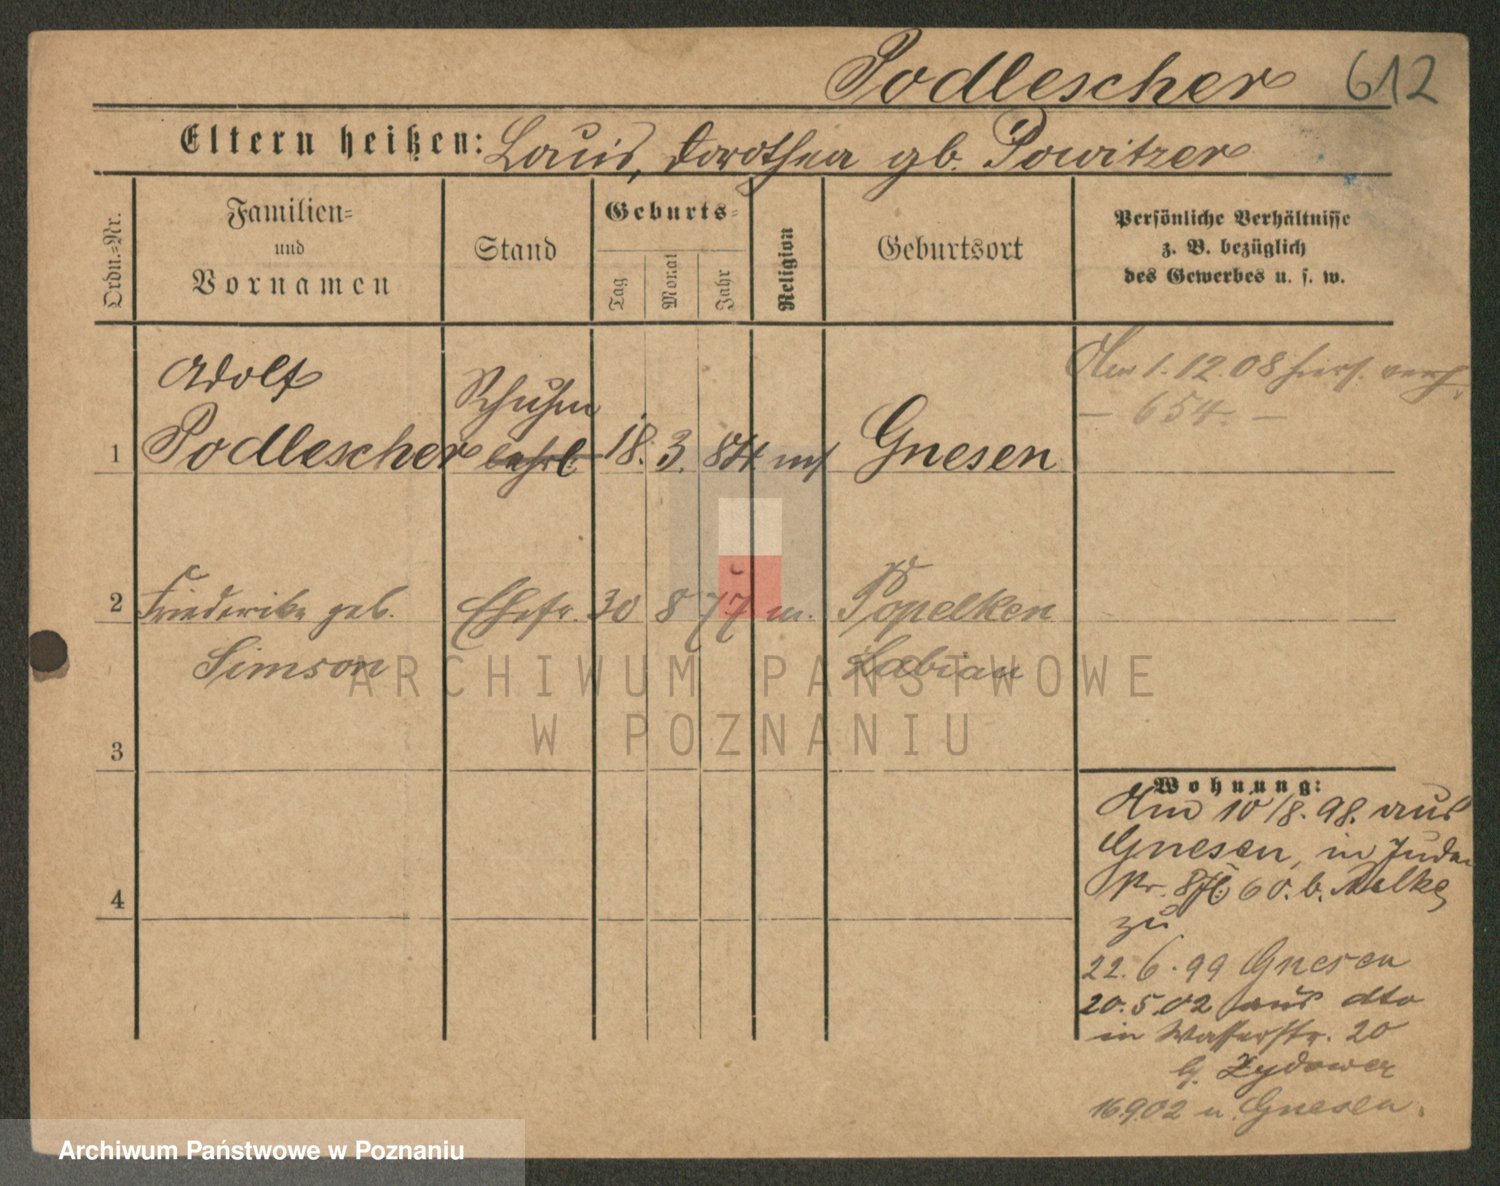 Podlescher 612
Eltern heißen: Louis, Dorothea gb. Powitzer
Ordn.=Nr.
Familien=
und
Vornamen
Stand
Geburts=
Tag
Monat
Jahr
Religion
Geburtsort
Persönliche Verhältnisse
z. B. bezüglich
des Gewerbes u. s. w.
Adolf
Schuhm
1 Podlescher lehrl. 18. 3. 84 mos Gnesen
1.12.08 hier. verh.
— 654. —
2 Friederike geb. Ehefr. 30 8 77 m. Popelken
Simson Labiau
3
4
Wohnung:
Am 10/8. 98. aus
Gnesen, in Juden
Str. 60. b.
zu
22.6.99 Gnesen
20.5.02 aus dto
in Wasserstr. 20
b. Zydower
16.9.02 n. Gnesen.
ARCHIWUM PAŃSTWOWE
W POZNANIU
Archiwum Państwowe w Poznaniu